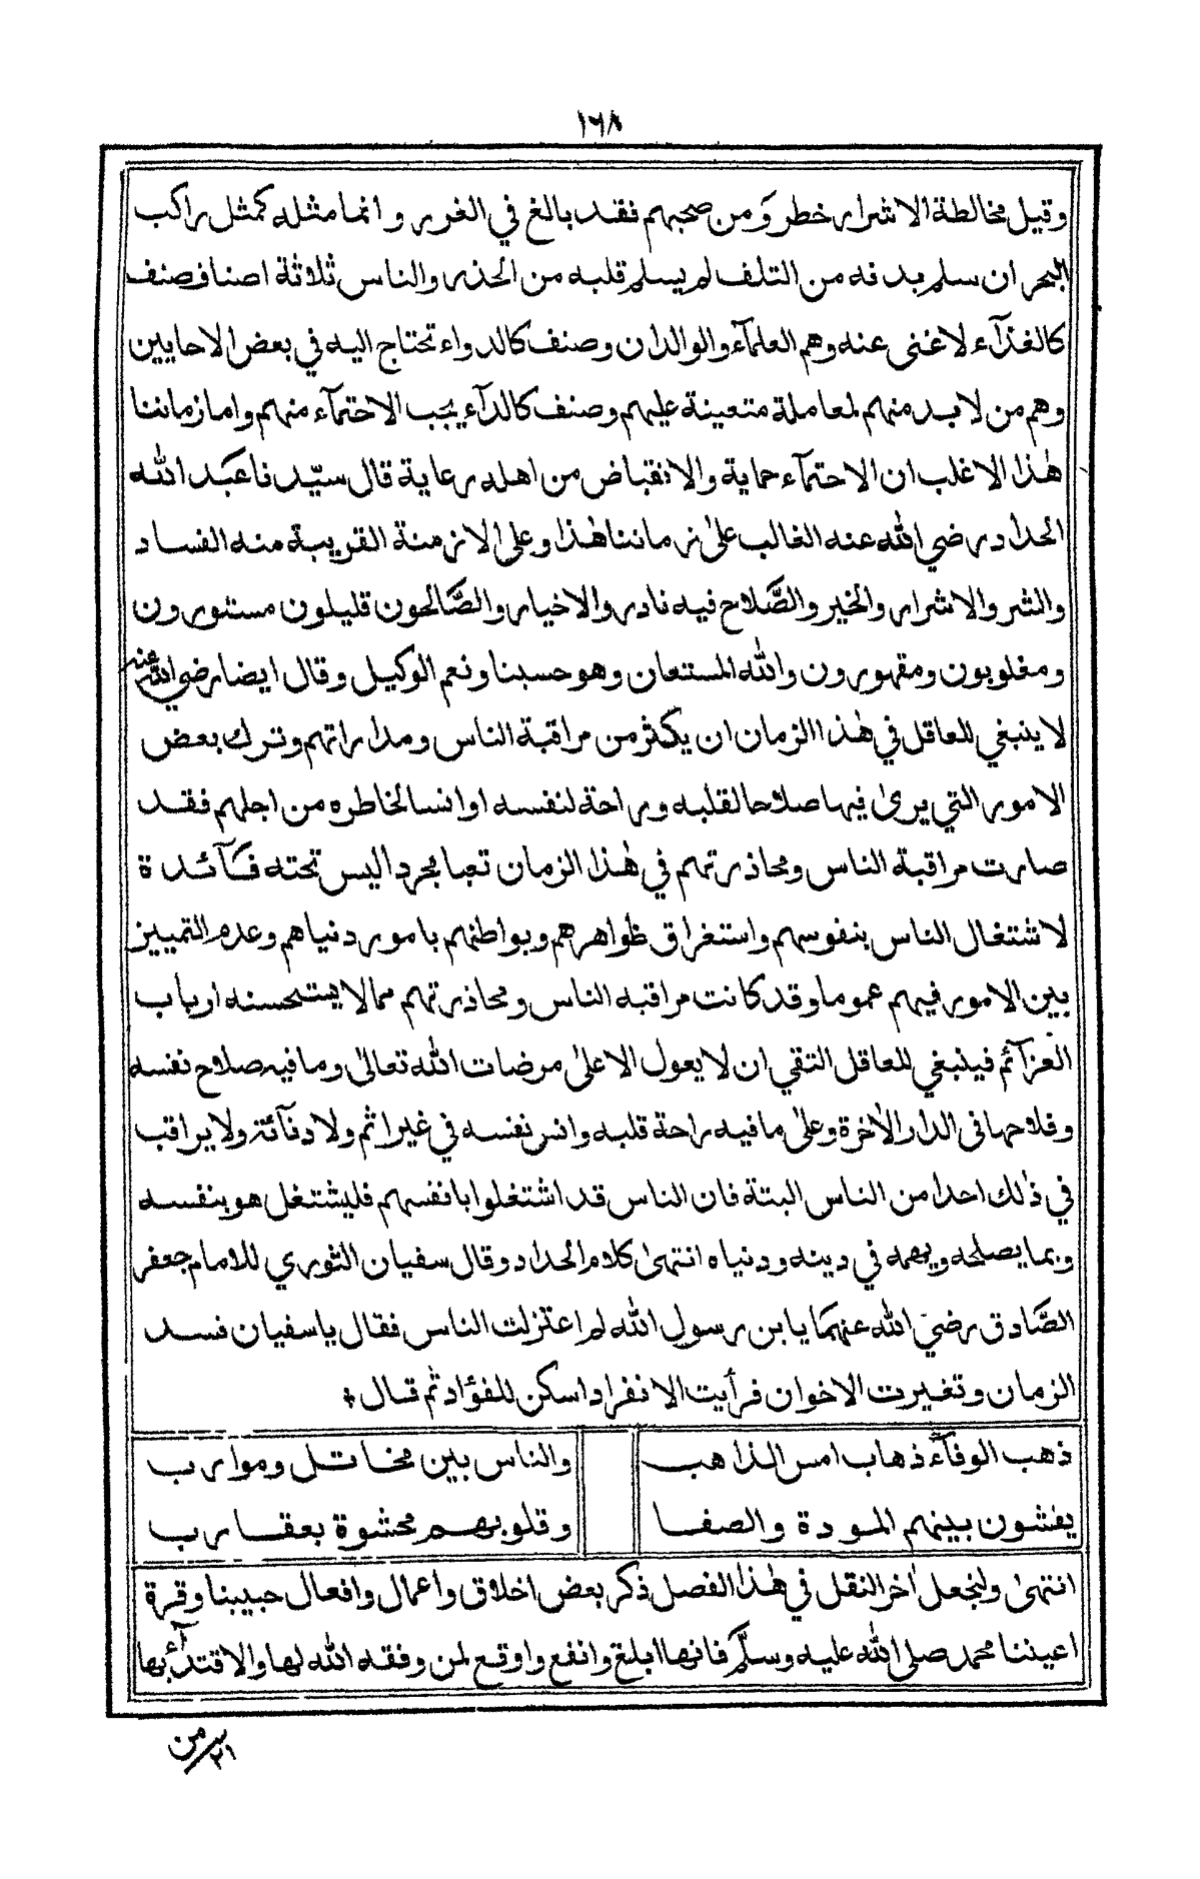 ١٦٨
وقيل مخالطة الاشرار خطر وَمن صحبهم فقد بالغ في الغرر وانما مثله كمثل راكب
البحر ان سلم بدنه من التلف لم يسلم قلبه من الحذر والناس ثلاثة اصناف صنف
كالغذآء لاغنى عنه وهم العلمآء والوالدان وصنف كالدواء تحتاج اليه في بعض الاحايين
وهم من لابد منهم لمعاملة متعينة عليهم وصنف كالدآء يجب الاحتمآء منهم واما زماننا
هٰذا الاغلب ان الاحتمآء حماية والانقباض من اهله رعاية قال سيّدنا عَبد الله
الحداد رضي الله عنه الغالب علىٰ زماننا هٰذا وعلى الازمنة القريبة منه الفساد
والشر والاشرار والخير والصَّلاح فيه نادر والاخيار والصَّالحون قليلون مستورون
ومغلوبون ومقهورون والله المستعان وهو حسبنا ونعم الوكيل وقال ايضا رضي الله عنه
لاينبغي للعاقل في هٰذا الزمان ان يكثر من مراقبة الناس ومداراتهم وترك بعض
الامور التي يرىٰ فيها صلاحا لقلبه وراحة لنفسه او انسا لخاطره من اجلهم فقد
صارت مراقبة الناس ومحاذرتهم في هٰذا الزمان تعبا مجردا ليس تحته فـآئدة
لاشتغال الناس بنفوسهم واستغراق ظواهرهم وبواطنهم بامور دنياهم وعدم التمييز
بين الامور فيهم عموما وقد كانت مراقبه الناس ومحاذرتهم مما لا يستحسنه ارباب
العزآئم فينبغي للعاقل التقي ان لا يعول الا علىٰ مرضات الله تعالىٰ وما فيه صلاح نفسه
وفلاحها فى الدار الاٰخرة وعلىٰ مافيه راحة قلبه وانس نفسه في غير اثم ولا دنآئة ولا يراقب
في ذٰلك احدا من الناس البتة فان الناس قد اشتغلوا بانفسهم فليشتغل هو بنفسه
وبما يصلحه ويهمه في دينه ودنياه انتهىٰ كلام الحداد وقال سفيان الثوري للامام جعفر
الصَّادق رضيَ الله عنهما يا بن رسول الله لم اعتزلت الناس فقال ياسفيان فسد
الزمان وتغيرت الاخوان فرأيت الانفراد اسكن للفؤاد ثم قال +
ذهب الوفآء ذهاب امس الذاهب والناس بين مخاتل وموارب
يفشون بينهم المودة والصفا وقلوبهم محشوة بعقارب
انتهىٰ ولنجعل اٰخر النقل في هٰذا الفصل ذكر بعض اخلاق واعمال وافعال حبيبنا وقرة
اعيننا محمد صلى الله عليه وسلّم فانها ابلغ وانفع واوقع لمن وفقه الله لها والاقتدآء بها
٢١ من